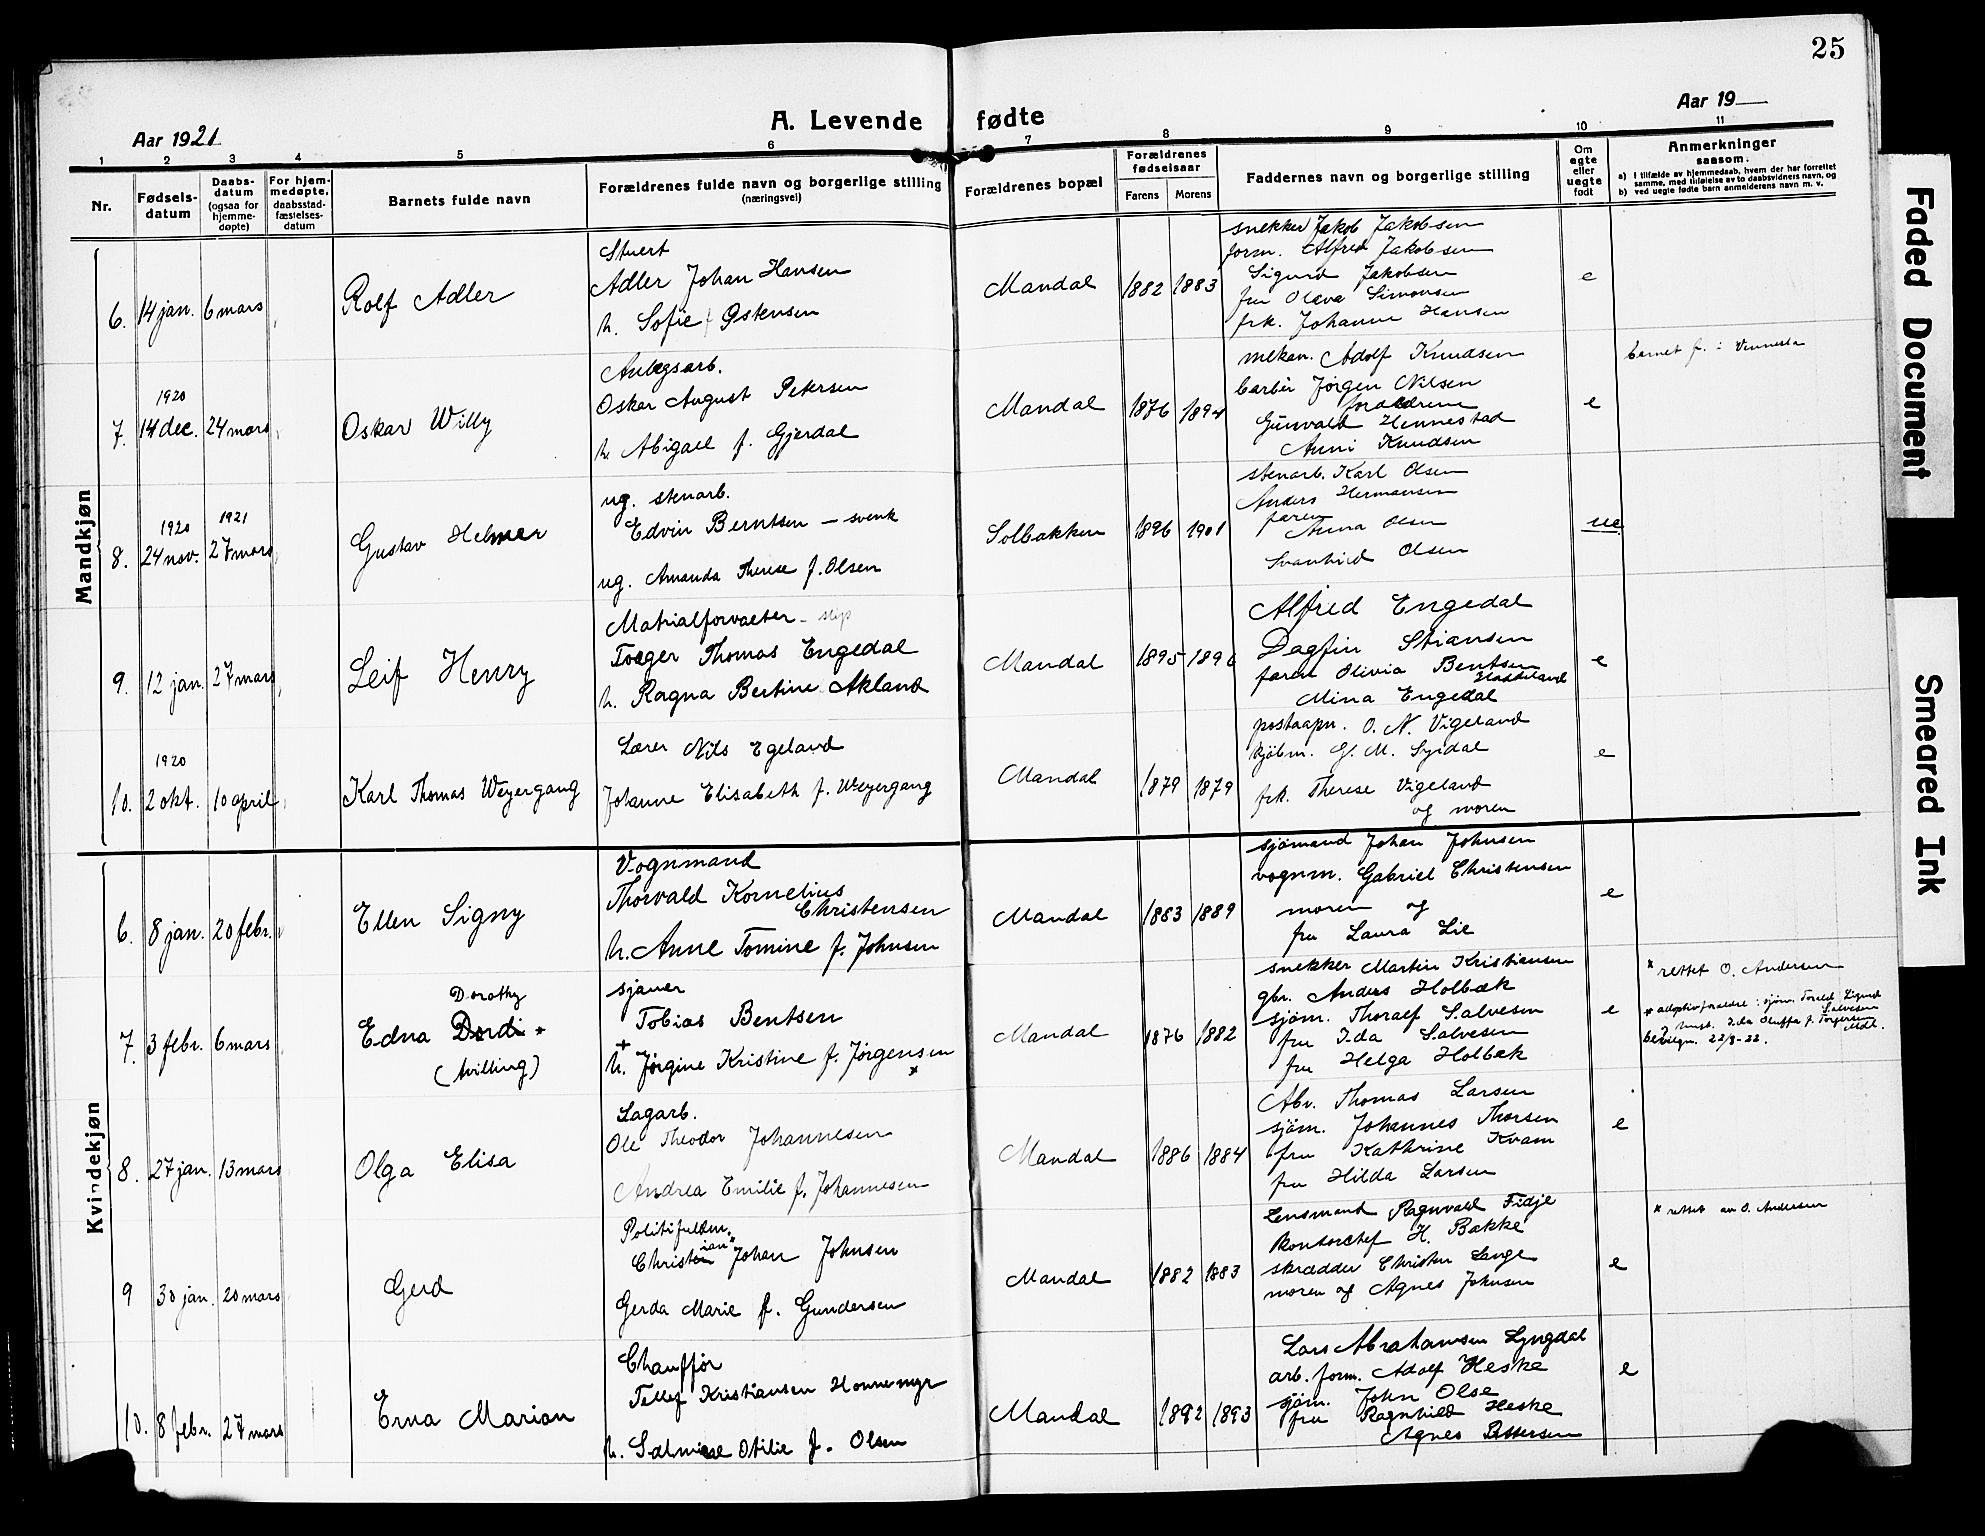 25
A. Levende fødte
Aar 1921
Aar 19
1 2 3 4 5 6 7 8 9 10 11
Nr.
Fødsels-
datum
Daabs-
datum
(ogsaa for
hjemme-
døpte)
For hjem-
medøpte,
daabsstad-
fæstelses-
datum
Barnets fulde navn
Forældrenes fulde navn og borgerlige stilling
(næringsvei)
Forældrenes bopæl
Forældrenes
fødselsaar
Farens Morens
Faddernes navn og borgerlige stilling
Om
egte
eller
uegte
født
Anmerkninger
saasom:
a) I tilfælde av hjemmedaab, hvem der har forrettet
samme, med tilføielse av to daabsvidners navn, og
b) ved uegte fødte barn anmelderens navn m. v.
Mandkjøn
6. 14 jan. 6 mars
Rolf Adler
Stuert
Adler Johan Hansen
h. Sofie f Østensen
Mandal 1882 1883
snekker Jakob Jakobsen
form. Alfred Jakobsen
Sigurd Jakobsen
fru Oleva Simonsen
frk. Johanne Hansen
e
1920
7. 14 dec. 24 mars
Oskar Willy
Anlegsarb.
Oskar August Petersen
h. Abigael f. Gjerdal
Mandal 1876 1894
mekan. Adolf Knudsen
barber Jørgen Nilsen
forældrene
Gunvald Hennestad
Anni Knudsen
e
barnet f. i Vennesla
1920 1921
8. 24 nov. 27 mars
Gustav Helmer
ug. stenarb.
Edvin Berntsen – svensk
ug. Amanda Therese f. Olsen
Solbakken 1896 1901
stenarb. Karl Olsen
Anders Hermansen
faren
Anna Olsen
Svanhild Olsen
ue
9. 12 jan. 27 mars
Leif Henry
Matrialforvalter – slip
Torger Thomas Engedal
h. Ragna Bertine Akland
Mandal 1895 1896
Alfred Engedal
Dagfin Stiansen
faren Olivia Bentsen
Mina Engedal
e
1920
10. 2 okt. 10 april
Karl Thomas Weyergang
Lærer Nils Egeland
Johanne Elisabeth f. Weyergang
Mandal 1879 1879
postaapn. O. N. Vigeland
kjøbm. G. M. Syrdal
frk. Therese Vigeland
og moren
e
Kvindekjøn
6. 8 jan. 20 febr.
Ellen Signy
Vognmand
Thorvald Kornelius
Christensen
h. Anne Tomine f. Johnsen
Mandal 1883 1889
sjømand Johan Johnsen
vognm. Gabriel Christensen
moren og
fru Laura Lie
e
7. 3 febr. 6 mars
Dorothy
Edna Dordi *
(tvilling)
sjauer
Tobias Bentsen
+
h. Jørgine Kristine f. Jørgensen
*
Mandal 1876 1882
snekker Martin Kristiansen
gbr. Anders Holbæk
sjøm. Thoralf Salvesen
fru Ida Salvesen
fru Helga Holbæk
e
* rettet O. Andersen
* adoptivforældre: sjøm. Torald Sigurd
Salvesen
Ida Oluffa f. Torgersen
Mdl.
bevilgn. 22/3-22.
8. 27 jan. 13 mars
Olga Elisa
Sagarb.
Ole Theodor Johannesen
Andrea Emilie f. Johannesen
Mandal 1886 1884
Abr. Thomas Larsen
sjøm. Johannes Thorsen
fru Kathrine Kvam
fru Hilda Larsen
e
9 30 jan. 20 mars
Gerd
Politifuldm.
ian*
Christen Johan Johnsen
Gerda Marie f. Gundersen
Mandal 1882 1883
Lensmand Ragnvald Fidje
Kontorchef H. Bakke
skrædder Christen Lange
moren og Agnes Johnsen
e
* rettet av O. Andersen
10. 8 febr. 27 mars
Erna Marion
Chauffør
Tellef Kristiansen Honnemyr
h. Salmine Otilie f. Olsen
Mandal 1892 1893
Lars Abrahamsen Lyngdal
arb. form. Adolf Heske
sjøm. John Olse
fru Ragnhild Heske
Agnes Pettersen
e
Faded Document
Smeared Ink